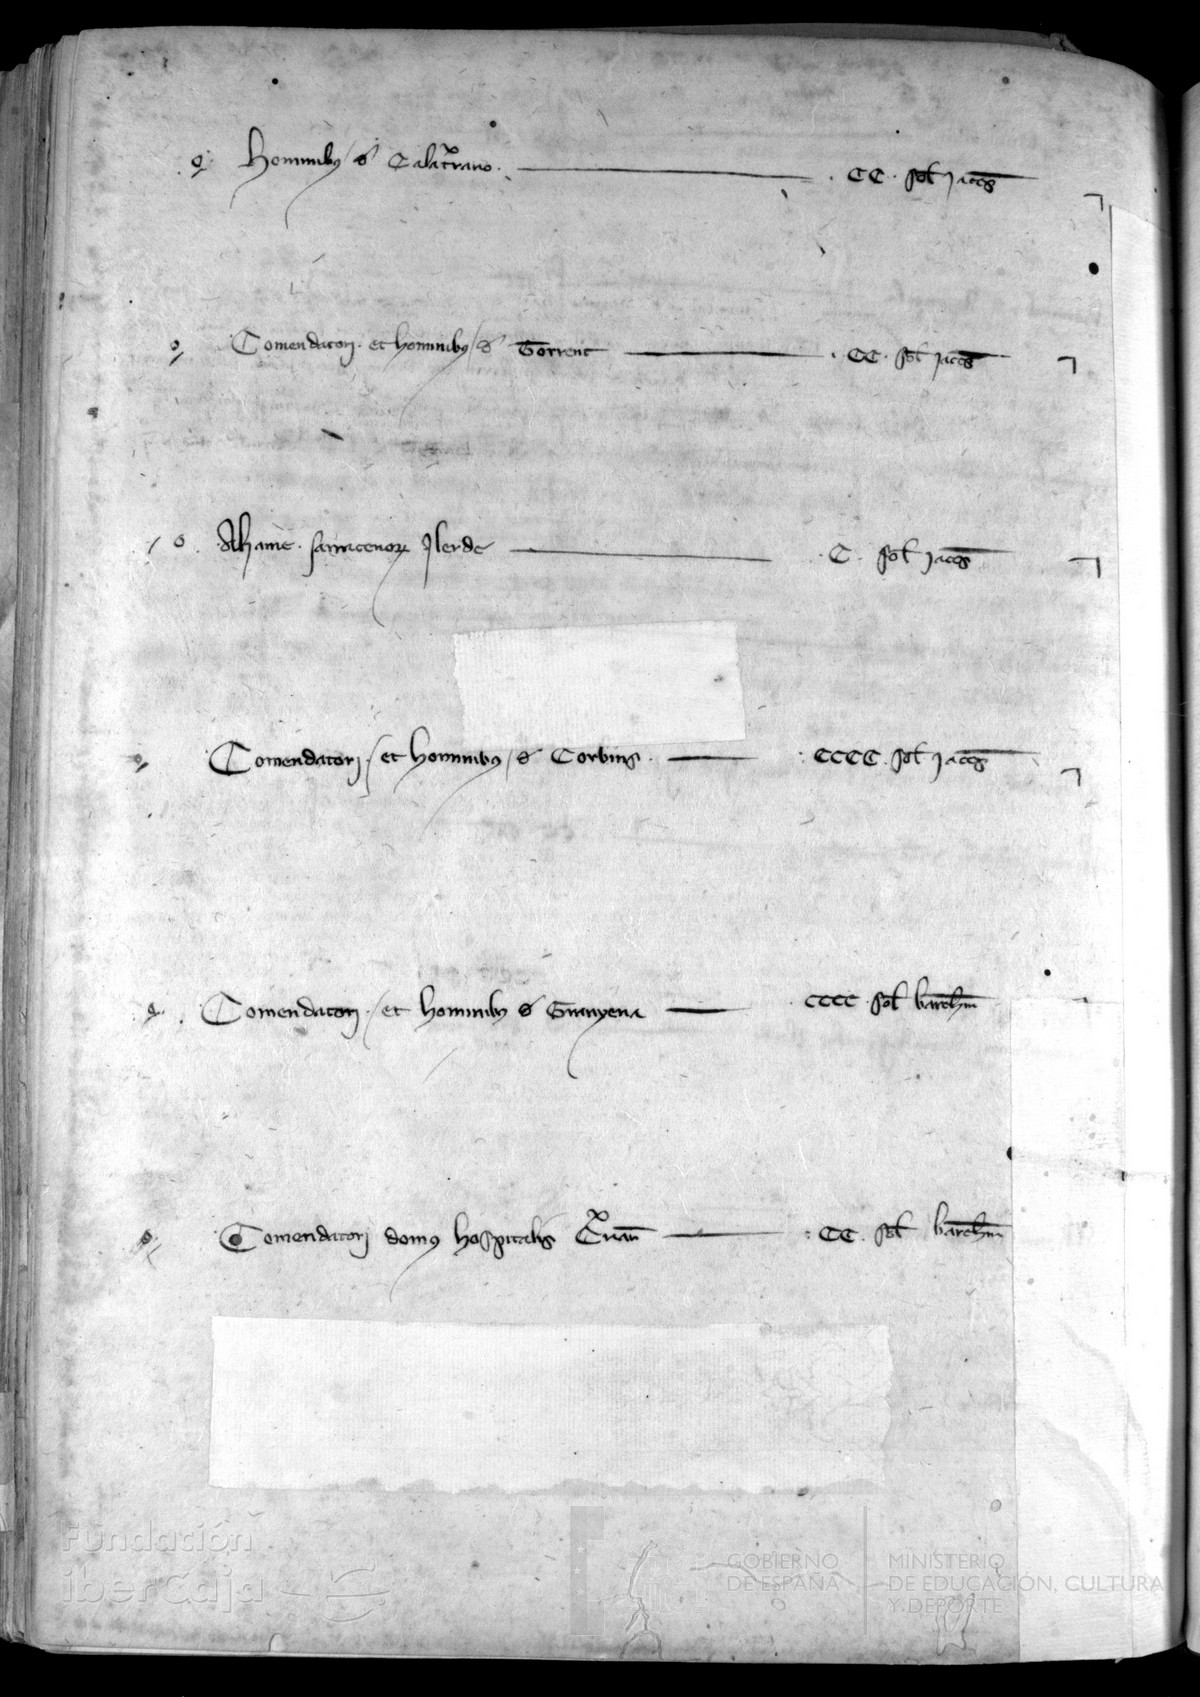 Hominibus de Calatravo CC sol Jaccs
Comendatori et hominibus de Torrent CC sol Jaccs
Aliame sarracenorum Ilerde C sol Jaccs
Comendatori et hominibus de Corbins CCCC sol Jaccs
Comendatori et hominibus de Granyena CCCC sol barchn
Comendatori domus hospitalis CC sol barchn
Fundación
iberCaja
GOBIERNO
DE ESPAÑA
MINISTERIO
DE EDUCACIÓN, CULTURA
Y DEPORTE